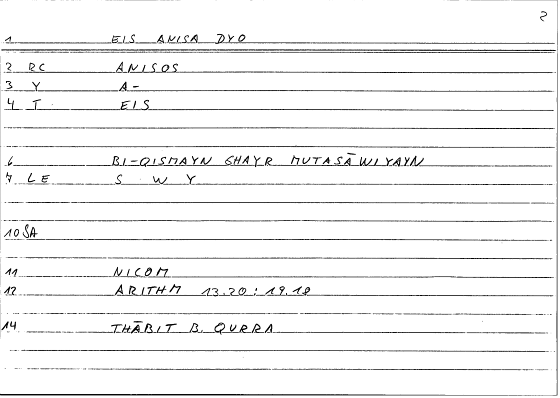 2
1 EIS ANISA DYO
2 RC ANISOS
3 Y A-
4 T EIS
6 BI-QISMAYN GHAYR MUTASĀWIYAYN
7 LE S W Y
10 SA
11 NICOM
12 ARITHM 13.20 : 19.18
14 THĀBIT B. QURRA